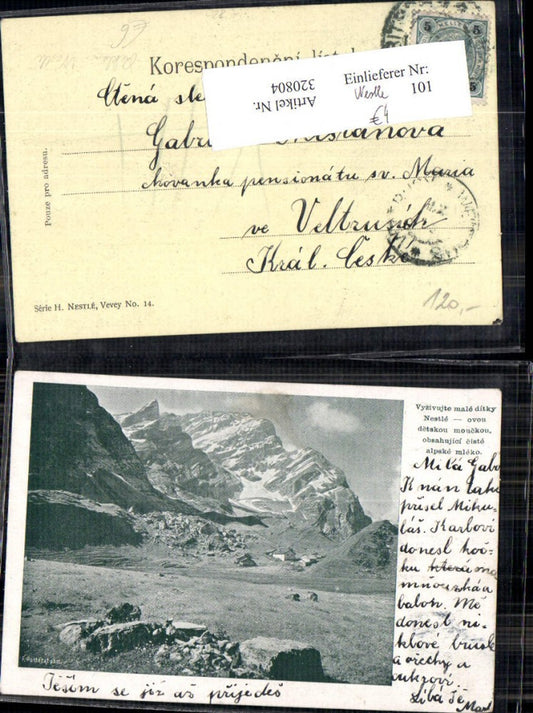 66
Korespondenční
5 5
Einlieferer Nr:
101
Nestle
€4
Artikel Nr.
320804
Ctěná
Pouze pro adresu.
chovanka pensionátu sv. Maria
ve Veltrusích
Král. České
120,-
Série H. NESTLÉ, Vevey No. 14.
Vyživujte malé dítky
Nestlé — ovou
dětskou moučkou,
obsahující čisté
alpské mléko.
Milá Gabi
K nám také
přišel Miku-
láš. Karlovi
donesl koč-
ku
a
balon. Mě
donesl ni-
klové
a ořechy a
cukrovi.
Líbá Tě
Těším se již až přijedeš